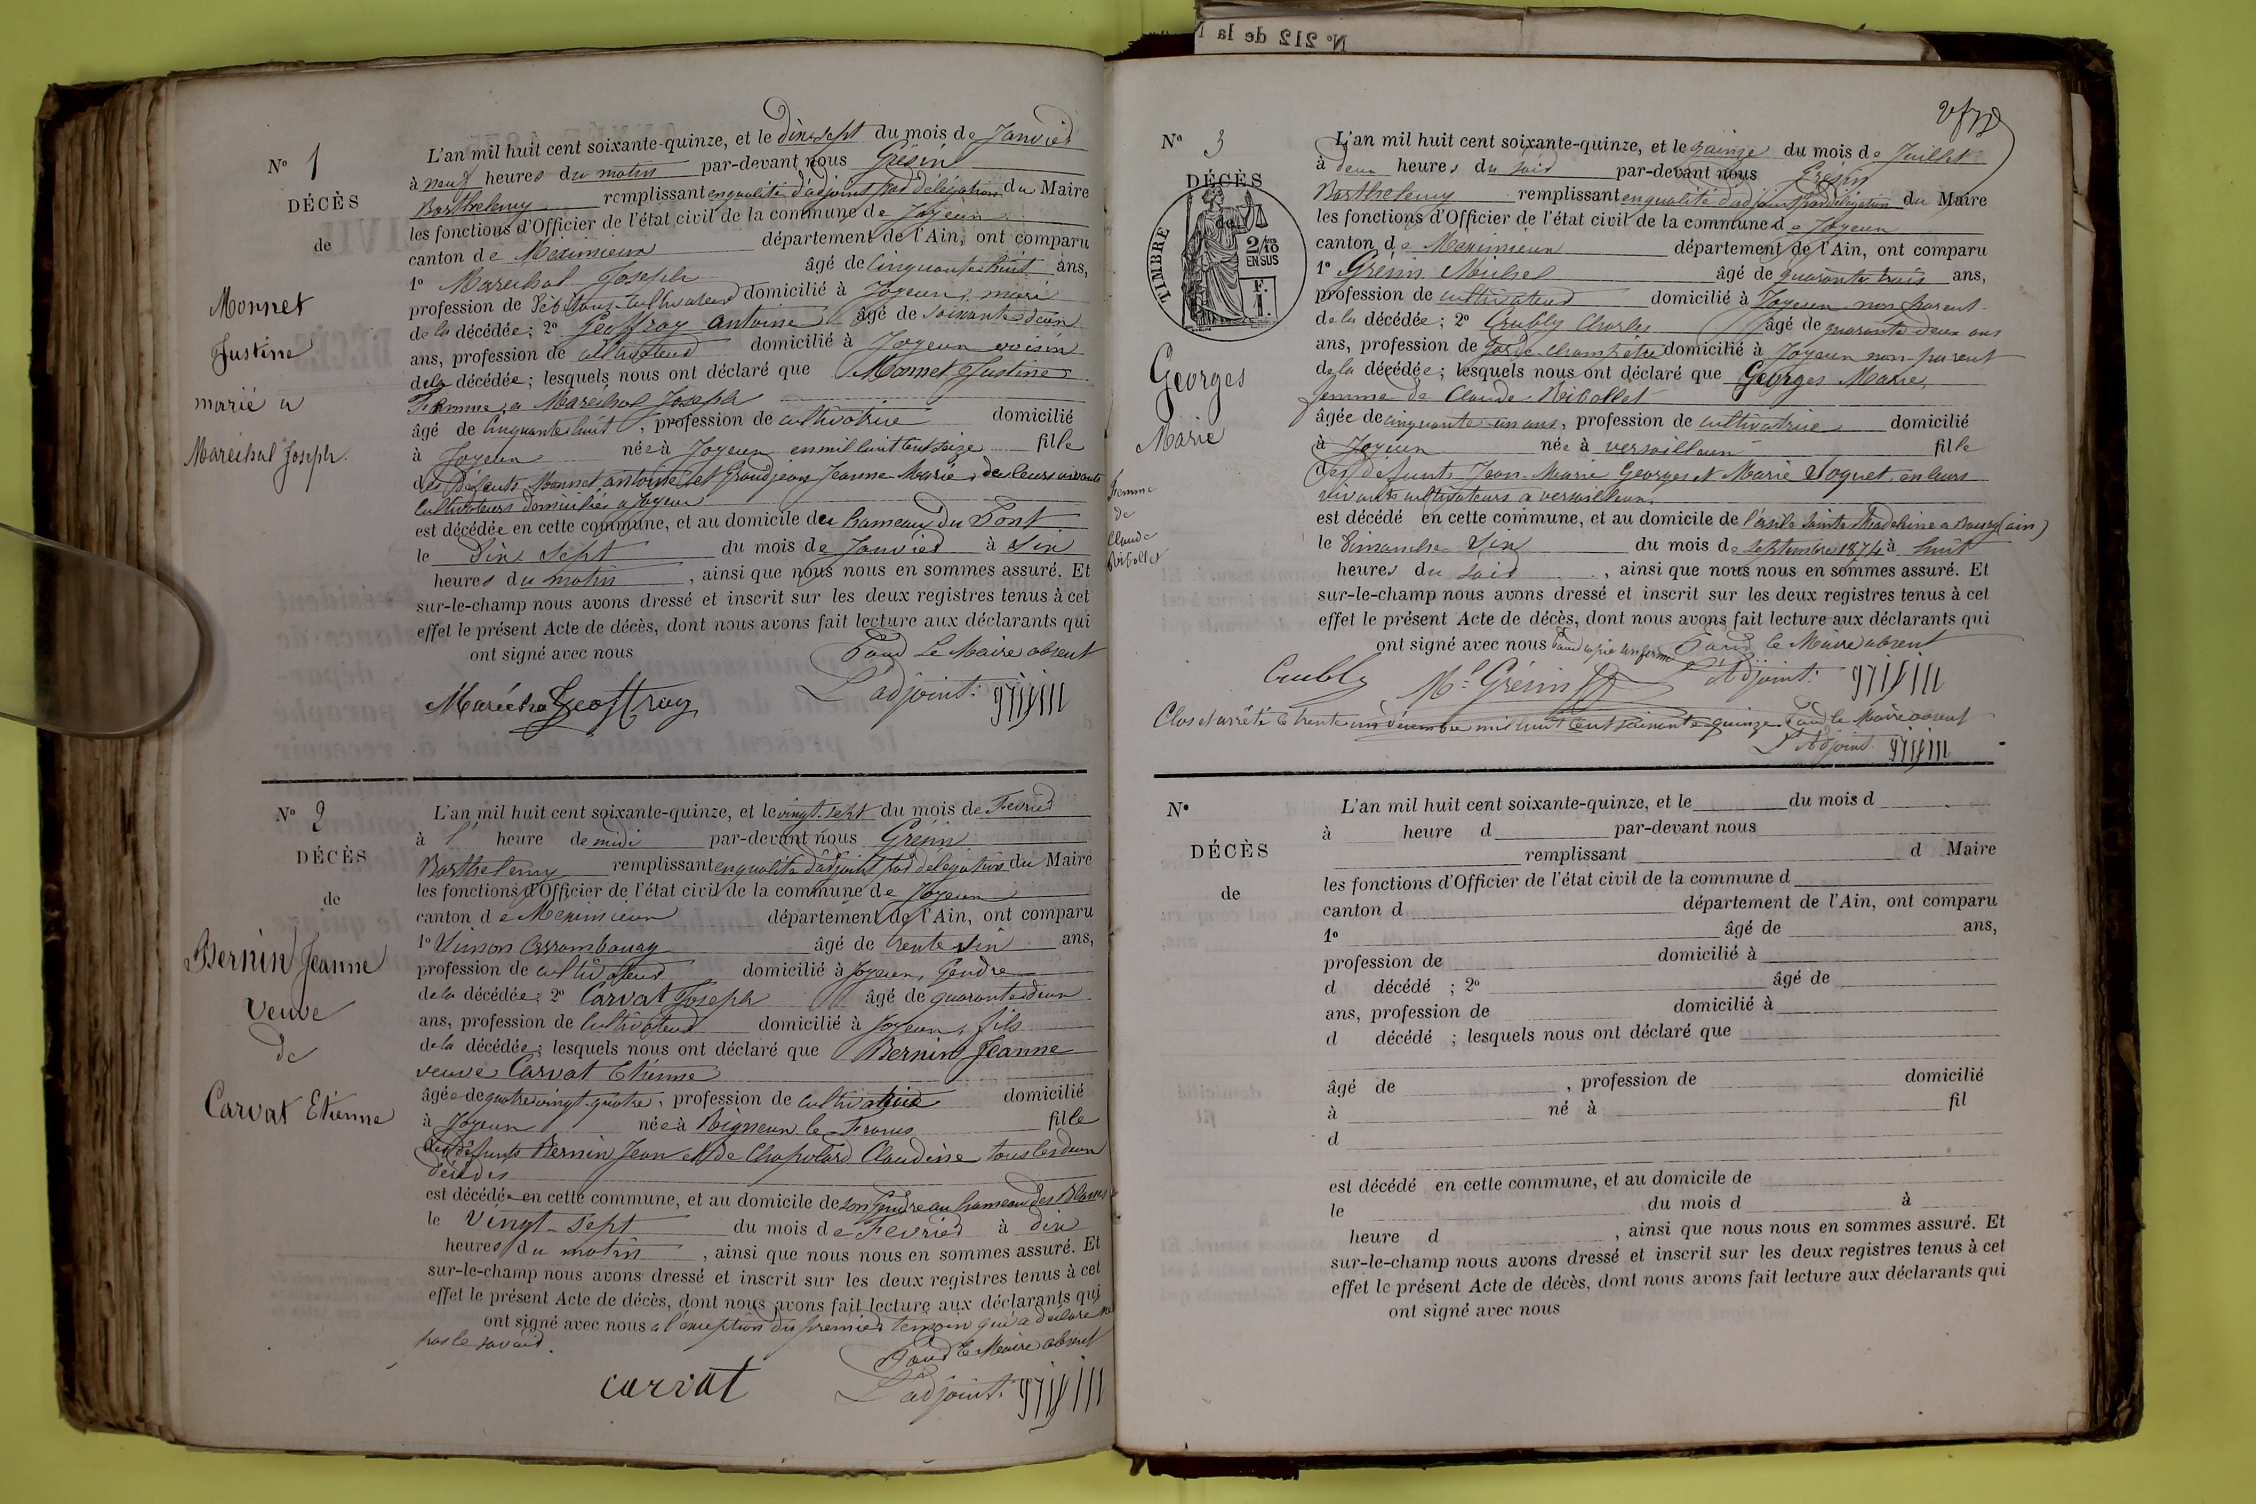 N° 212 de la
N° 1
DÉCÈS
de
Monnet
Justine
marié a
Maréchal Joseph.
L'an mil huit cent soixante-quinze, et le dix sept du mois de Janvier
à neuf heures du matin par-devant nous Grésin
Barthelemy remplissant en qualité d'adjoint par délégation du Maire
les fonctions d'Officier de l'état civil de la commune de Joyeux
canton de Meximieux département de l'Ain, ont comparu
1° Marechal Joseph âgé de Cinquante huit ans,
profession de cultivateur domicilié à Joyeux, mari
de la décédée; 2° Geoffray antoine âgé de soixante deux
ans, profession de cultivateur domicilié à Joyeux voisin
de la décédée; lesquels nous ont déclaré que Monnet Justine
Femme a Maréchal Joseph
âgé de Cinquante huit, profession de cultivatrice domicilié
à Joyeux née à Joyeux en mil huit cent seize fille
des défunts Monnet antoine et Grandjean Jeanne Marie, de leurs vivants
Cultivateurs domiciliés a Joyeux
est décédée en cette commune, et au domicile du hameau du Pont
le dix sept du mois de Janvier à six
heures du matin, ainsi que nous nous en sommes assuré. Et
sur-le-champ nous avons dressé et inscrit sur les deux registres tenus à cet
effet le présent Acte de décès, dont nous avons fait lecture aux déclarants qui
ont signé avec nous
Pour Le Maire absent
L'adjoint.
Maréchal Geoffray
N° 2
DÉCÈS
de
Bernin Jeanne
Veuve
de
Carvat Etienne
L'an mil huit cent soixante-quinze, et le vingt-sept du mois de Fevrier
à l' heure de midi par-devant nous Grésin
Barthelemy remplissant en qualité d'adjoint par délégation du Maire
les fonctions d'Officier de l'état civil de la commune de Joyeux
canton de Meximieux département de l'Ain, ont comparu
1° âgé de trente six ans,
profession de cultivateur domicilié à Joyeux, Gendre
de la décédée; 2° Carvat Joseph âgé de quarante deux
ans, profession de Cultivateur domicilié à Joyeux, fils
de la décédée; lesquels nous ont déclaré que Bernin Jeanne
veuve Carvat Etienne
âgée de quatre vingt quatre, profession de cultivatrice domicilié
à Joyeux née à Rigneux le Franc fille
des défunts Bernin Jean et de Chapolard Claudine tous les deux
décédés
est décédée en cette commune, et au domicile de son Gendre au hameau des Blancs
le Vingt-sept du mois de Fevrier à dix
heures du matin, ainsi que nous nous en sommes assuré. Et
sur-le-champ nous avons dressé et inscrit sur les deux registres tenus à cet
effet le présent Acte de décès, dont nous avons fait lecture aux déclarants qui
ont signé avec nous a l'exception du premier temoin qui a déclaré ne
pas le savoir.
Pour le Maire absent
L'adjoint.
carvat
N° 3
DÉCÈS
de
TIMBRE
2/10
EN SUS
F.
1.
Georges
Marie
Femme
de
Claude
Ribollet
L'an mil huit cent soixante-quinze, et le quinze du mois de Juillet
à deux heures du soir par-devant nous Grésin
Barthelemy remplissant en qualité d'adjoint par délégation du Maire
les fonctions d'Officier de l'état civil de la commune de Joyeux
canton de Meximieux département de l'Ain, ont comparu
1° Grésin Michel âgé de quarante trois ans,
profession de cultivateur domicilié à Joyeux non parent
de la décédée; 2° Crubly Charles âgé de quarante deux ans
ans, profession de Garde champêtre domicilié à Joyeux non parent
de la décédée; lesquels nous ont déclaré que Georges Marie,
femme de Claude Ribollet
âgée de cinquante un ans, profession de cultivatrice domicilié
à Joyeux née à versailleux fille
des défunts Jean-Marie Georges et Marie Joguet, en leurs
vivants cultivateurs a versailleux,
est décédé en cette commune, et au domicile de l'asile Sainte Madeleine a Bourg (ain)
le Dimanche Six du mois de septembre 1874 à huit
heures du soir, ainsi que nous nous en sommes assuré. Et
sur-le-champ nous avons dressé et inscrit sur les deux registres tenus à cet
effet le présent Acte de décès, dont nous avons fait lecture aux déclarants qui
ont signé avec nous Pour copie conforme Pour le Maire absent
L'Adjoint.
Crubly M.l Grésin
Clos et arrêté le trente un décembre mil huit cent soixante-quinze. Pour le Maire absent
L'Adjoint
N°
DÉCÈS
de
L'an mil huit cent soixante-quinze, et le du mois d
à heure d par-devant nous
remplissant d Maire
les fonctions d'Officier de l'état civil de la commune d
canton d département de l'Ain, ont comparu
1° âgé de ans,
profession de domicilié à
d décédé ; 2° âgé de
ans, profession de domicilié à
d décédé ; lesquels nous ont déclaré que
âgé de , profession de domicilié
à né à fil
d
est décédé en cette commune, et au domicile de
le du mois d à
heure d , ainsi que nous nous en sommes assuré. Et
sur-le-champ nous avons dressé et inscrit sur les deux registres tenus à cet
effet le présent Acte de décès, dont nous avons fait lecture aux déclarants qui
ont signé avec nous